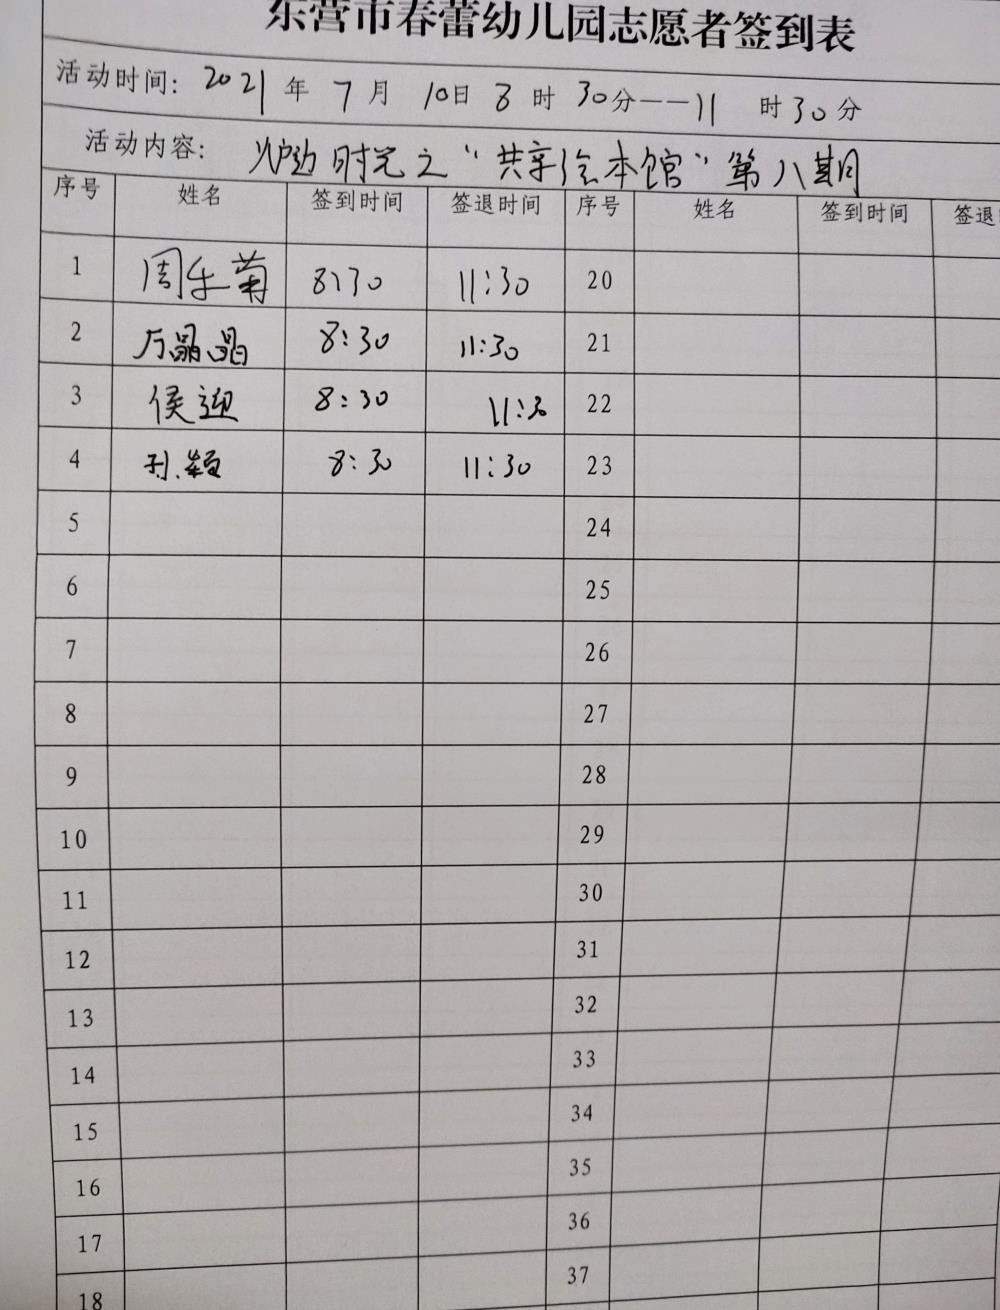 东营市春蕾幼儿园志愿者签到表
活动时间: 2021 年 7 月 10日 8 时 30分——11 时30分
活动内容: 时光之“共享绘本馆”第八期
序号 姓名 签到时间 签退时间 序号 姓名 签到时间 签退
1 周乐菊 8:30 11:30 20
2 万晶晶 8:30 11:30 21
3 侯迎 8:30 11:30 22
4 孙颖 8:30 11:30 23
5 24
6 25
7 26
8 27
9 28
10 29
11 30
12 31
13 32
14 33
15 34
16 35
17 36
18 37